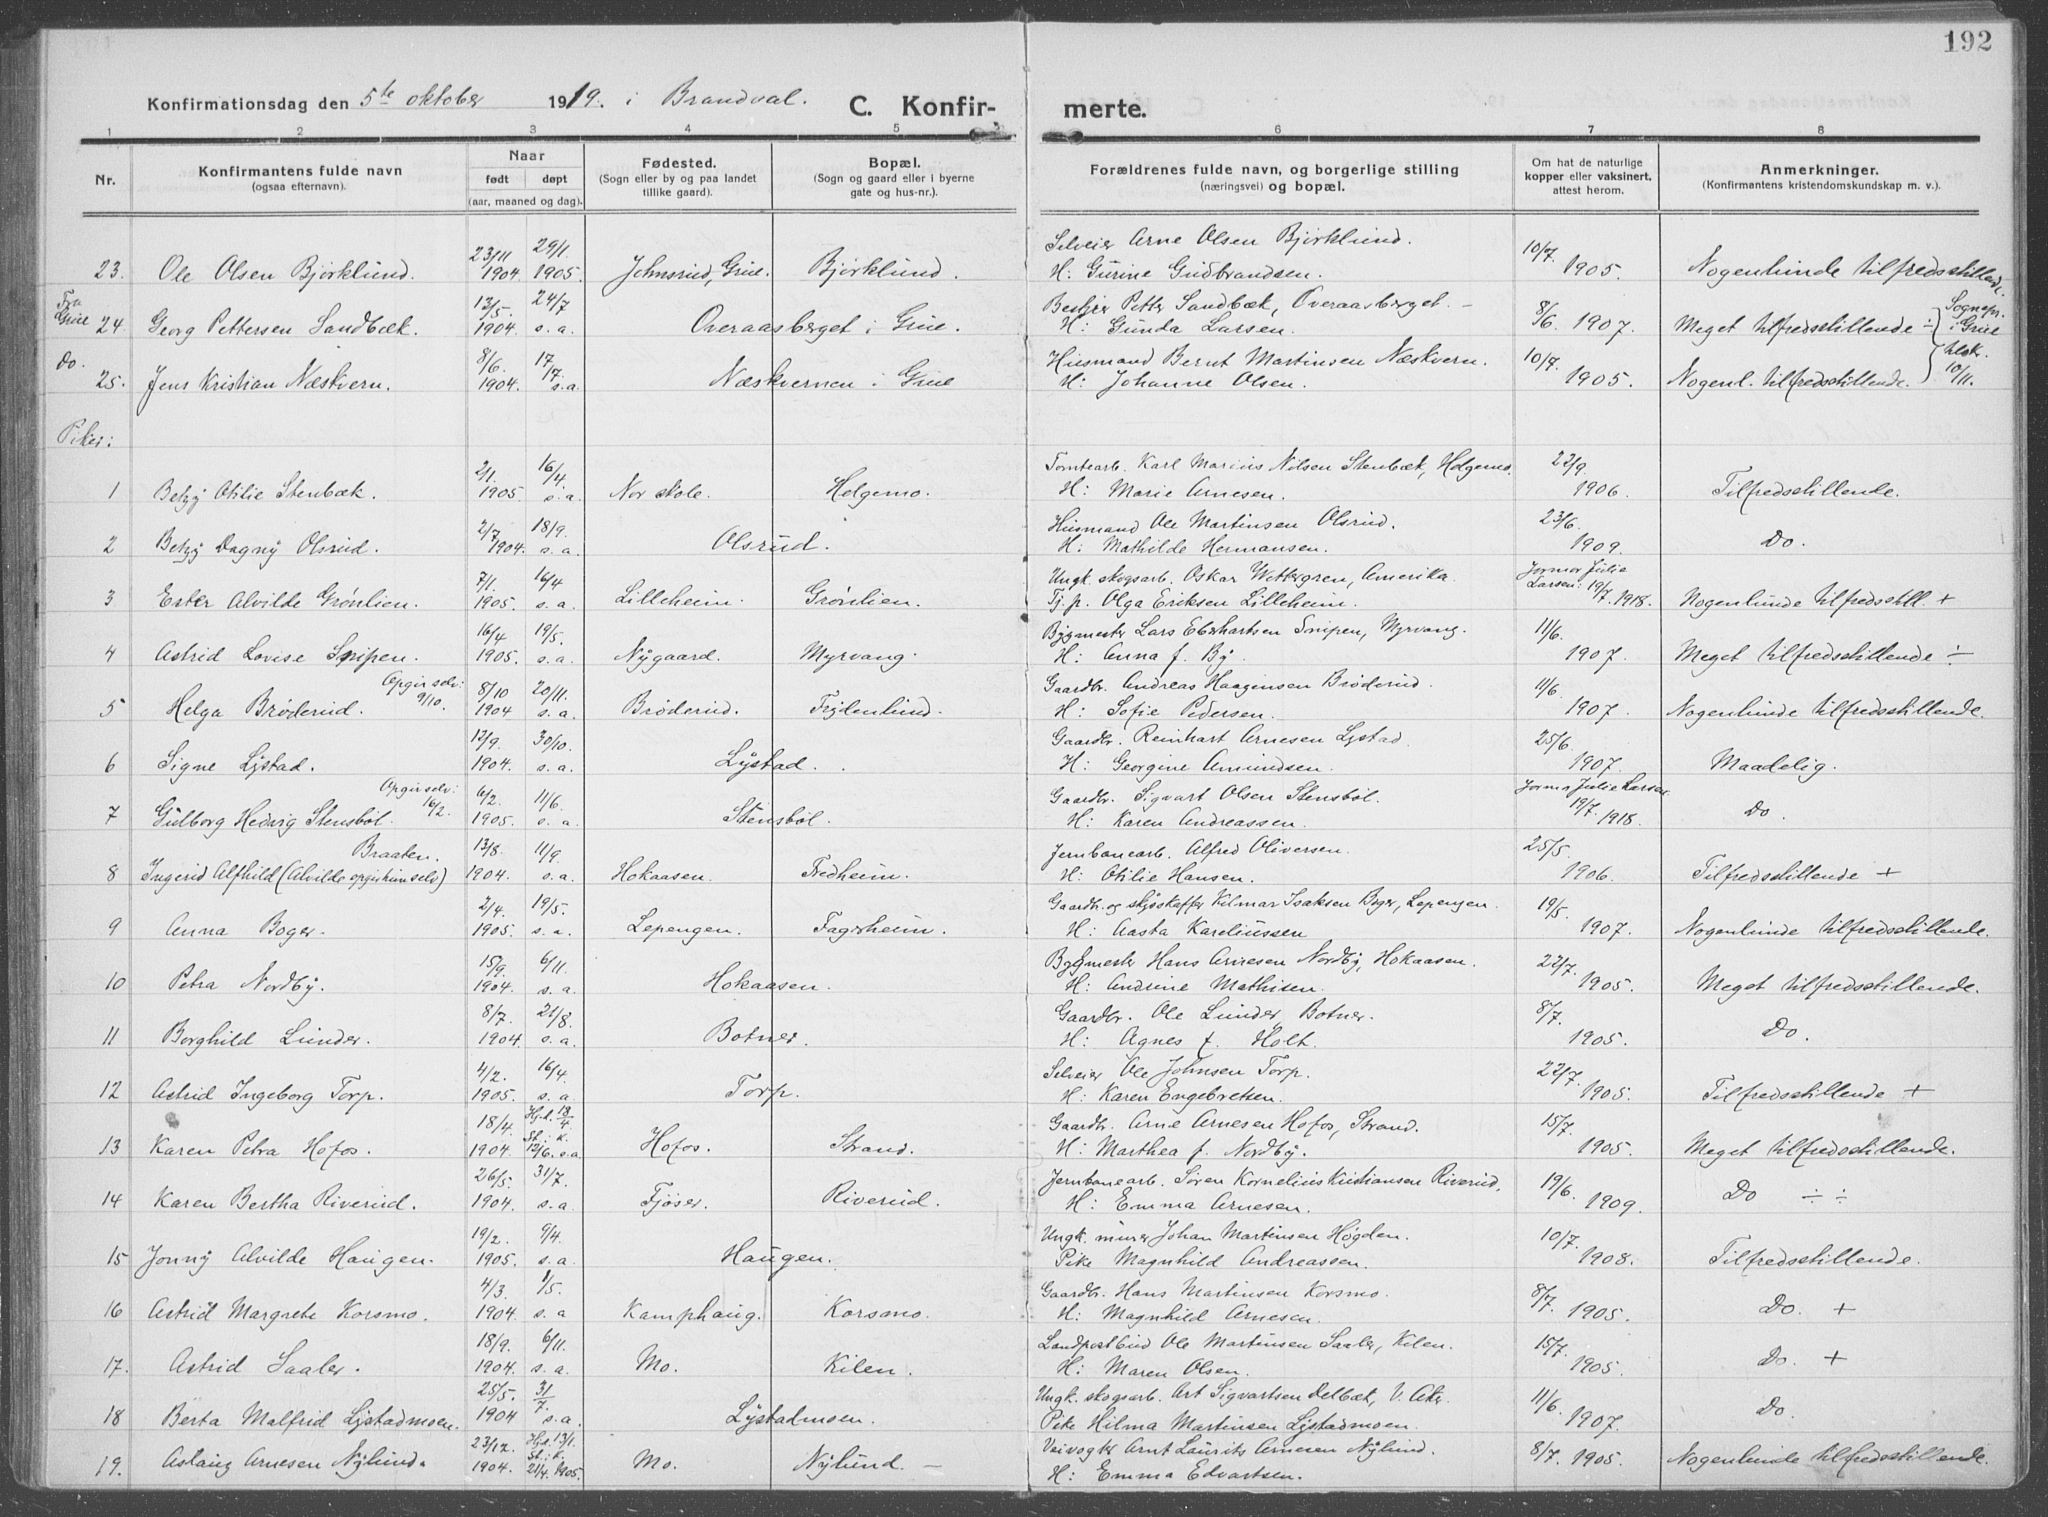 192
Konfirmationsdag den 5te oktober 1919. i Brandval. C. Konfir- merte.
1 2 3 4 5 6 7 8
Nr. Konfirmantens fulde navn (ogsaa efternavn). Naar født døpt (aar, maaned og dag). Fødested. (Sogn eller by og paa landet tillike gaard). Bopæl. (Sogn og gaard eller i byerne gate og hus-nr.). Forældrenes fulde navn, og borgerlige stilling (næringsvei) og bopæl. Om hat de naturlige kopper eller vaksinert, attest herom. Anmerkninger. (Konfirmantens kristendomskundskap m. v.).
23/11 29/1. Selveier Arne Olsen Bjørklund. 10/7
23. Ole Olsen Bjørklund. 1904. 1905. Johnsrud, Grue. Bjørklund. H: Gurine Gudbrandsen. 1905. Nogenlunde tilfredsstillende.
Fra Grue 13/5. 24/7 Petter Sandbæk, Overaasberget. 8/6. Sognepr. i Grue
24. Georg Pettersen Sandbæk. 1904. s. a. Overaasberget i Grue. H: Gunda Larsen. 1907. Meget tilfredsstillende ÷
Do. 8/6. 17/7. Husmand Bernt Martinsen Næskvern. 10/7 10/11.
25. Jens Kristian Næskvern. 1904. s. a. Næskvernen i Grue H: Johanne Olsen. 1905. Nogenl. tilfredsstillende.
Piker:
2/1. 16/4. Tomtearb. Karl Marius Nilsen Stenbæk, Helgemo. 22/9.
1 Betzy Otilie Stenbæk. 1905. s. a. Nor skole. Helgemo. H: Marie Arnesen. 1906. Tilfredsstillende.
2/7 18/9. Husmand Ole Martinsen Olsrud. 23/6.
2 Betzy Dagny Olsrud. 1904. s. a. Olsrud. H: Mathilde Hermansen. 1909. Do.
7/1. 16/4 Ungk. skogsarb. Oskar Wettergren, Amerika. Jormor Julie Larsen: 19/7. 1918.
3 Ester Alvilde Grønlien. 1905. s. a. Lilleheim. Grønlien. Tj. p. Olga Eriksen Lilleheim. Nogenlunde tilfredsstill. +
16/4 19/5. Bygmester Lars Eberhartsen Snipen, Myrvang. 11/6.
4 Astrid Lovise Snipen. 1905. s. a. Nygaard. Myrvang. H: Anna f. By. 1907. Meget tilfredsstillende ÷
Opgir selv: 9/10. 8/10 20/11. Gaardbr. Andreas Haagensen Brøderud. 11/6.
5 Helga Brøderud. 1904 s. a. Brøderud. Frydenlund. H: Sofie Pedersen. 1907. Nogenlunde tilfredsstillende.
12/9. 30/10. Gaardbr. Reinhart Arnesen Lystad. 25/6.
6 Signe Lystad. 1904. s. a. Lystad. H: Georgine Amundsen. 1907. Maadelig.
Opgir selv: 16/2. 6/2. 11/6. Gaardbr. Sigvart Olsen Stensbøl. Jormor Julie Larsen
7 Gulborg Hedvig Stensbøl. 1905. s. a. Stensbøl. H: Karen Andreassen. 19/7. 1918. Do.
Braaten. 13/8. 11/9. Jernbanearb. Alfred Oliversen. 25/5.
8 Ingerid Alfhild (Alvilde opgir hun selv) 1904. s. a. Hokaasen. Fredheim. H: Otilie Hansen. 1906. Tilfredsstillende +
2/4. 19/5. Gaardbr. og skysskaffer Hilmar Isaksen Boger, Lepengen. 19/5.
9 Anna Boger. 1905. s. a. Lepengen. Fagerheim. H: Aasta Kareliussen 1907. Nogenlunde tilfredsstillende.
15/9. 6/11. Bygmester Hans Arnesen Nordby, Hokaasen. 22/7.
10 Petra Nordby. 1904. s. a. Hokaasen. H: Andrine Mathisen. 1905. Meget tilfredsstillende.
8/7. 21/8. Gaardbr. Ole Lunder, Botner. 8/7.
11 Borghild Lunder. 1904. s. a. Botner. H: Agnes f. Holt. 1905. Do.
4/2. 16/4. Selveier Ole Johnsen Torp. 22/7.
12 Astrid Ingeborg Torp. 1905. s. a. Torp. H: Karen Engebretsen. 1905. Tilfredsstillende +
18/4. Hj.d. 18/4 St. i k. Gaardbr. Arne Arnesen Hofos, Strand. 15/7.
13 Karen Petra Hofos. 1904. 12/6. s. a. Hofos. Strand. H: Marthea f. Nordby. 1905. Meget tilfredsstillende.
26/5. 31/7. Jernbanearb. Søren Kornelius Kristiansen Riverud. 19/6.
14 Karen Bertha Riverud. 1904. s. a. Tjøser. Riverud. H: Emma Arnesen. 1909. Do ÷ ÷
19/2. 9/4. Ungk. murer Johan Martinsen Høgden. 10/7.
15 Jonny Alvilde Haugen. 1905. s. a. Haugen. Pike Magnhild Andreassen. 1908. Tilfredsstillende.
4/3. 1/5. Gaardbr. Hans Martinsen Korsmo. 8/7.
16 Astrid Margrete Korsmo. 1904. s. a Kamphaug. Korsmo. H: Magnhild Arnesen. 1905. Do. +
18/9. 6/11. Landpostbud Ole Martinsen Saaler, Kilen. 15/7.
17. Astrid Saaler. 1904. s. a. Mo. Kilen. H: Maren Olsen. 1905. Do. +
25/5. 31/7. Ungk. skogsarb. Art Sigvartsen Delbæk, V. Aker. 11/6.
18 Berta Malfrid Lystadmoen. 1904 s. a. Lystadmoen. Pike Hilma Martinsen Lystadmoen. 1907. Do.
23/12. Hj.d. 13/1. St. i k. Veivogter Arnt Laurits Arnesen Nylund.
19. Aslaug Arnesen Nylund. 1904. 21/4. 1905. Mo. Nylund. – H: Emma Edvartsen. 8/7. 1905. Nogenlunde tilfredsstillende.